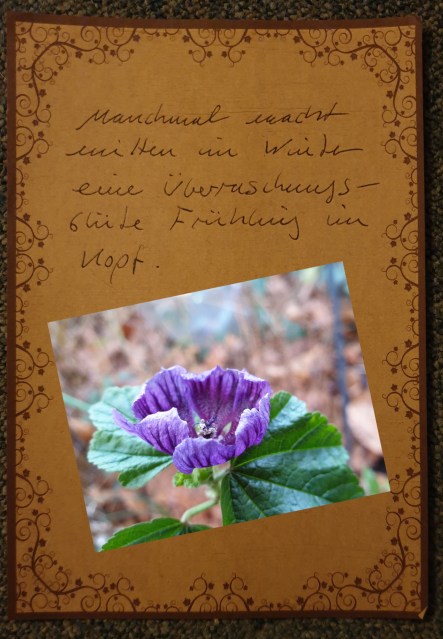 Manchmal macht
mitten im Winter
eine Überraschungs-
blüte Frühling im
Kopf.